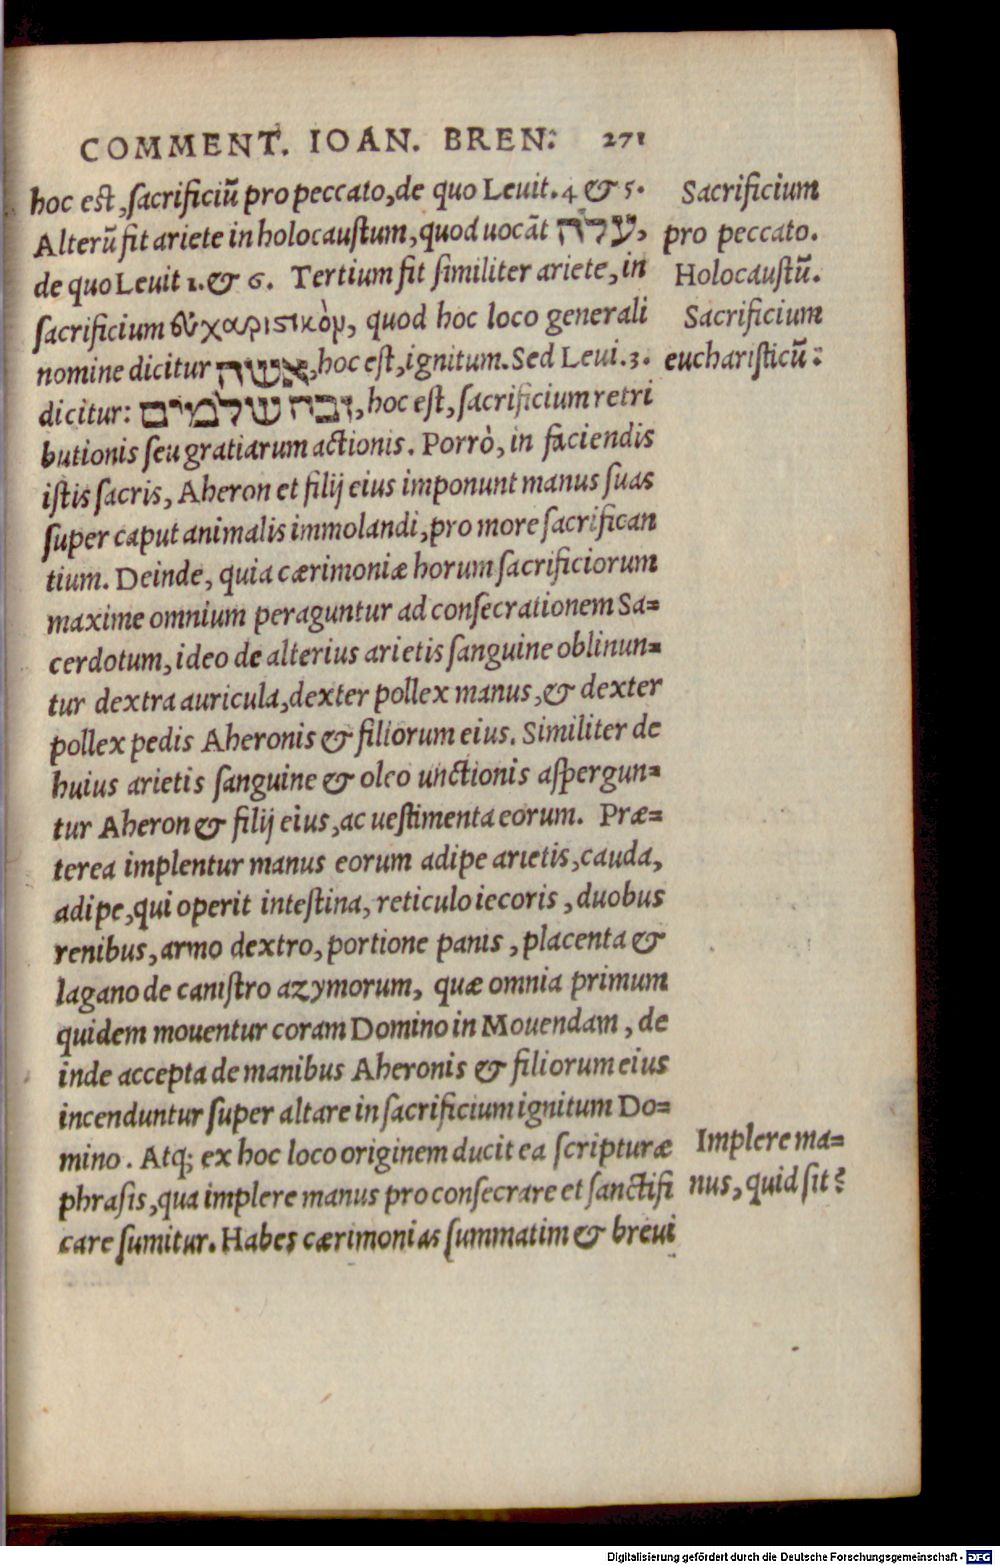 COMMENT. IOAN. BREN. 271
hoc est, sacrificiũ pro peccato, de quo Leuit. 4 & 5.
Alterũ fit ariete in holocaustum, quod uocãt עלה,
de quo Leuit 1. & 6. Tertium fit similiter ariete, in
sacrificium εὐχαριστικὸν, quod hoc loco generali
nomine dicitur אשה, hoc est, ignitum. Sed Leui. 3.
dicitur: זבח שלמים, hoc est, sacrificium retri
butionis seu gratiarum actionis. Porrò, in faciendis
istis sacris, Aheron et filij eius imponunt manus suas
super caput animalis immolandi, pro more sacrifican
tium. Deinde, quia cærimoniæ horum sacrificiorum
maxime omnium peraguntur ad consecrationem Sa=
cerdotum, ideo de alterius arietis sanguine oblinun=
tur dextra auricula, dexter pollex manus, & dexter
pollex pedis Aheronis & filiorum eius. Similiter de
huius arietis sanguine & oleo unctionis aspergun=
tur Aheron & filij eius, ac uestimenta eorum. Præ=
terea implentur manus eorum adipe arietis, cauda,
adipe, qui operit intestina, reticulo iecoris, duobus
renibus, armo dextro, portione panis, placenta &
lagano de canistro azymorum, quæ omnia primum
quidem mouentur coram Domino in Mouendam, de
inde accepta de manibus Aheronis & filiorum eius
incenduntur super altare in sacrificium ignitum Do=
mino. Atq; ex hoc loco originem ducit ea scripturæ
phrasis, qua implere manus pro consecrare et sanctifi
care sumitur. Habes cærimonias summatim & breui
Sacrificium
pro peccato.
Holocaustũ.
Sacrificium
eucharisticũ:
Implere ma=
nus, quid sit?
Digitalisierung gefördert durch die Deutsche Forschungsgemeinschaft - DFG